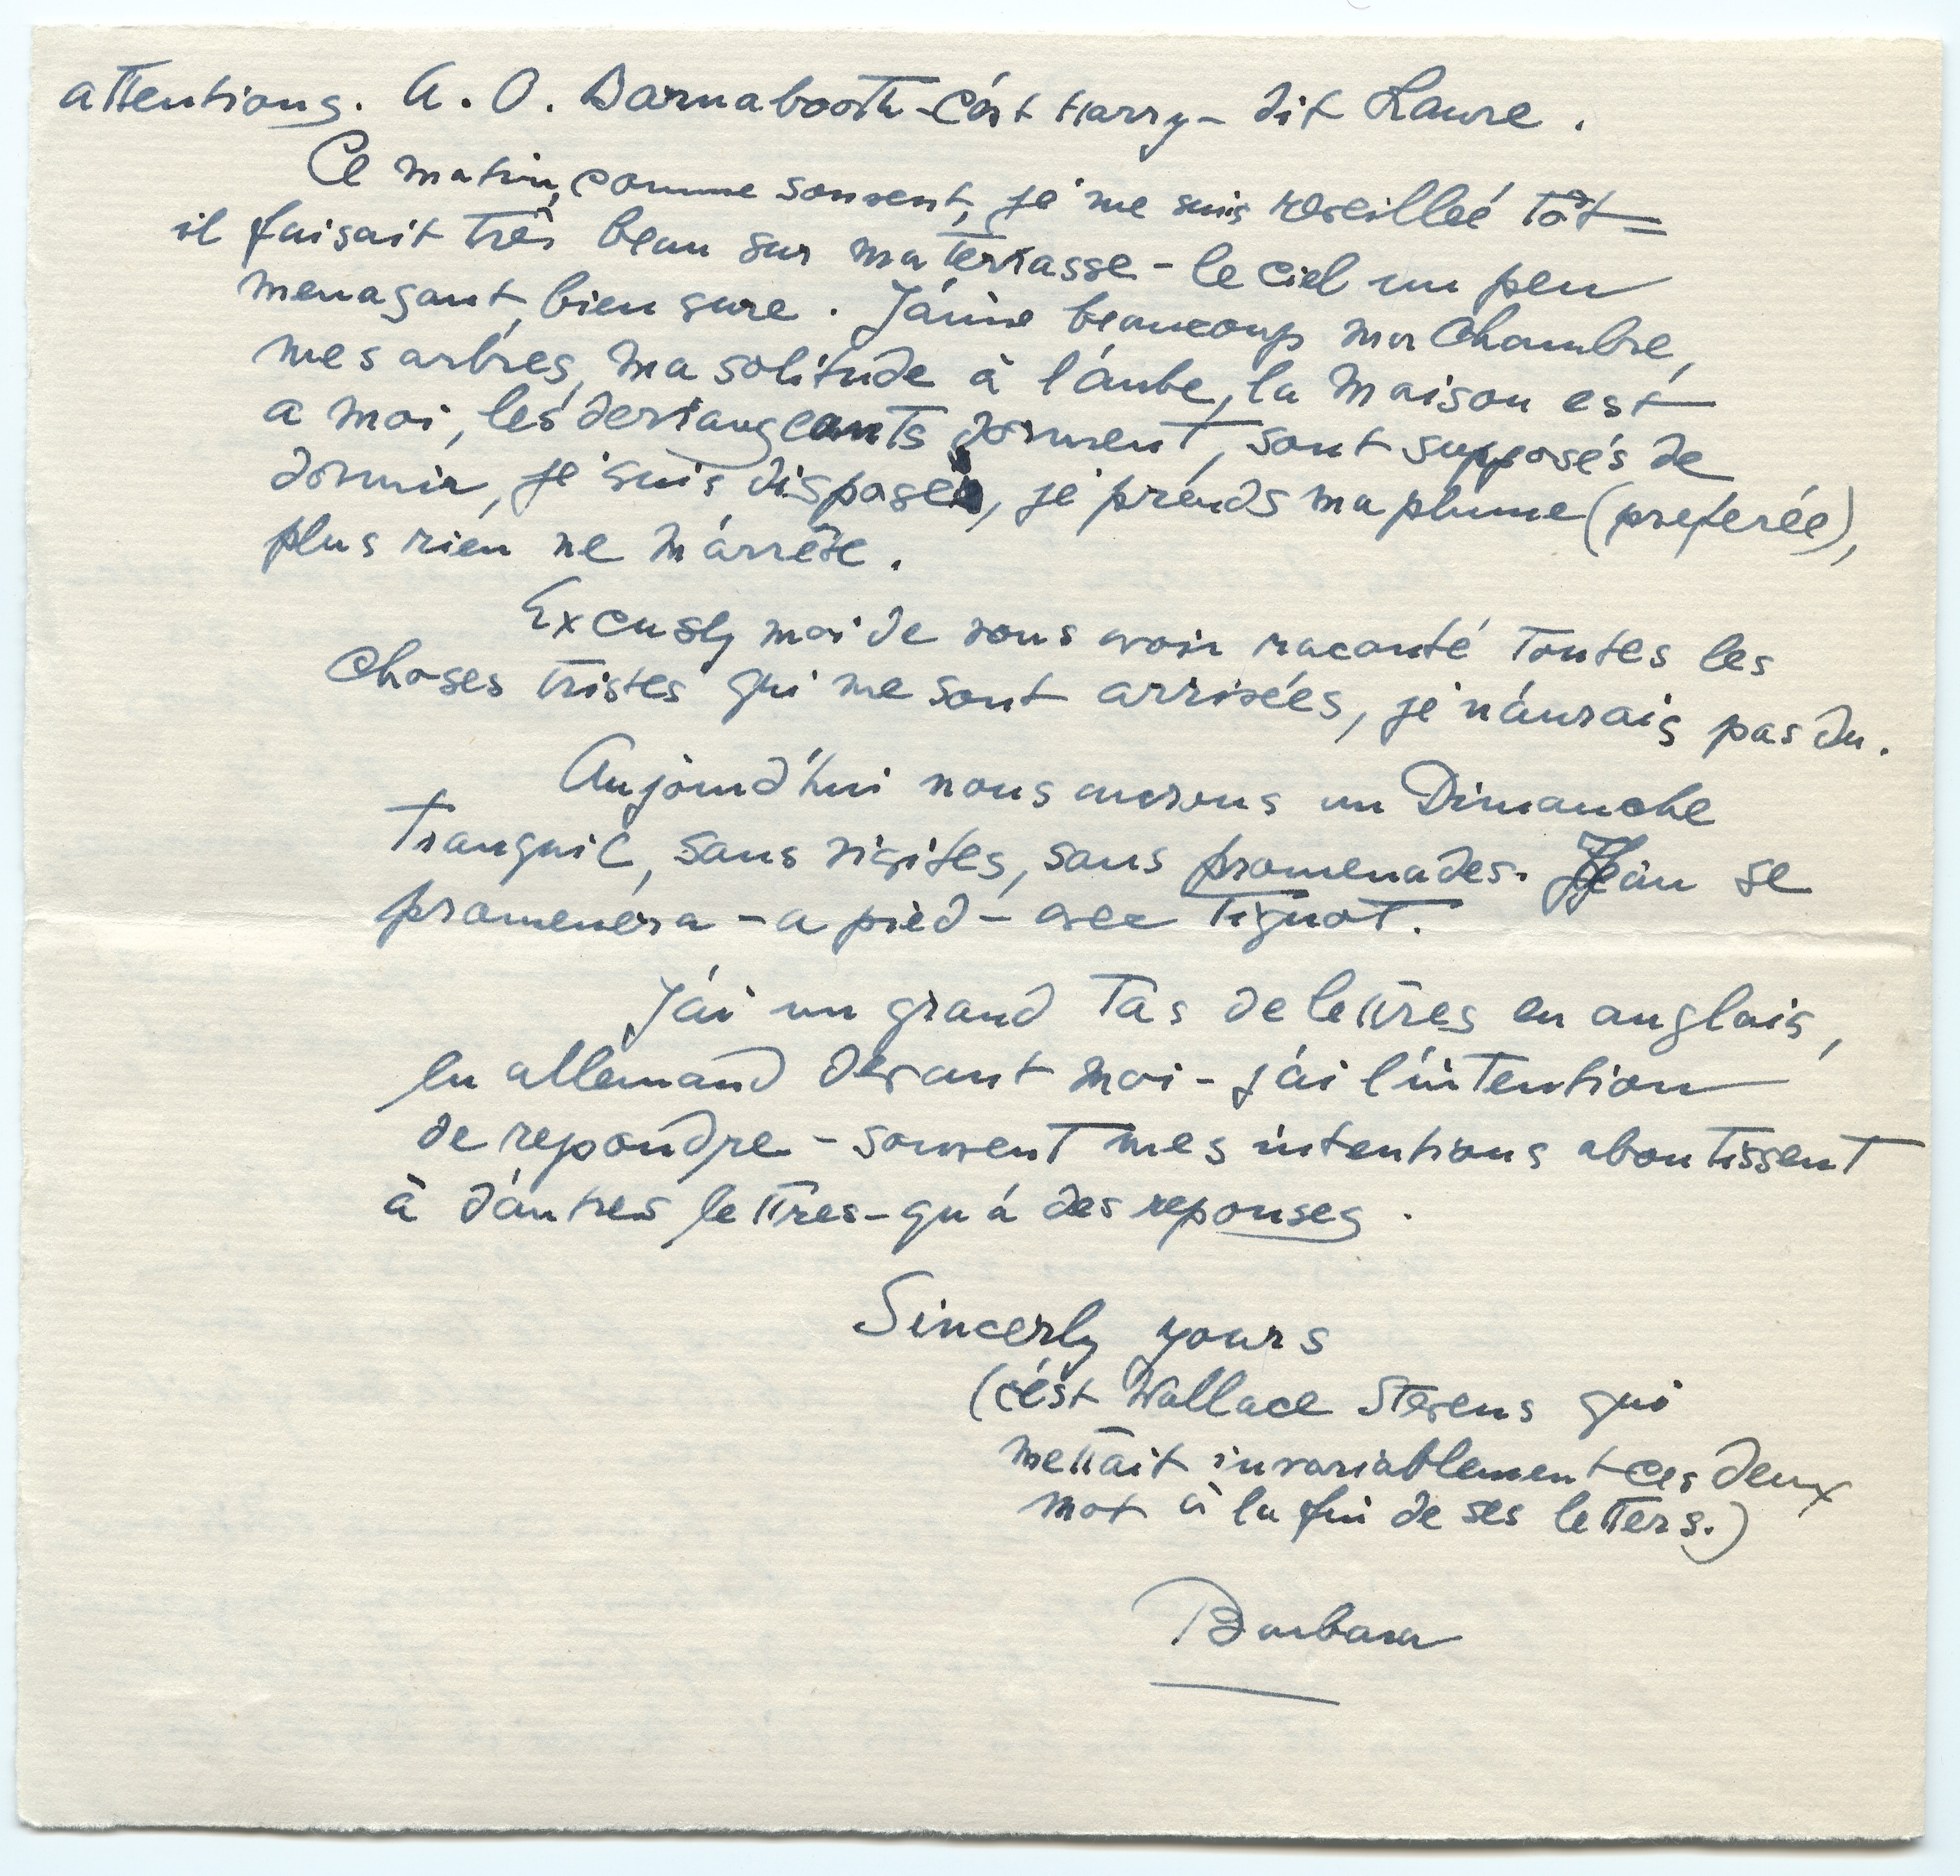 attentions. A. O. Barnabooth - c'est Harry - dit Laure.
Ce matin, comme souvent, je me suis reseilleé tôt =
il faisait très beau sur ma terrasse - le ciel un peu
menaçant, bien sure. J'aime beaucoup ma chambre,
mes arbres, ma solitude à l'aube, la maison est
a moi, les derrangeants dorment, sont supposés de
dormir, je suis disposeé, je prends ma plume (preferée),
plus rien ne m'arrête.
Excusez moi de vous avoir raconté toutes les
choses tristes qui me sont arrivées, je n'aurais pas du.
Aujourd'hui nous aurons un Dimanche
tranquil, sans visites, sans promenades. Jean se
promenera - a pied - avec Tignot.
J'ai un grand tas de lettres en anglais,
en allemand devant moi - j'ai l'intention
de repondre - souvent mes intentions aboutissent
à d'autres lettres - qu'á des reponses.
Sincerly yours
(c'est Wallace Stevens qui
mettait invariablement ces deux
mot à la fin de ses letters.)
Barbara